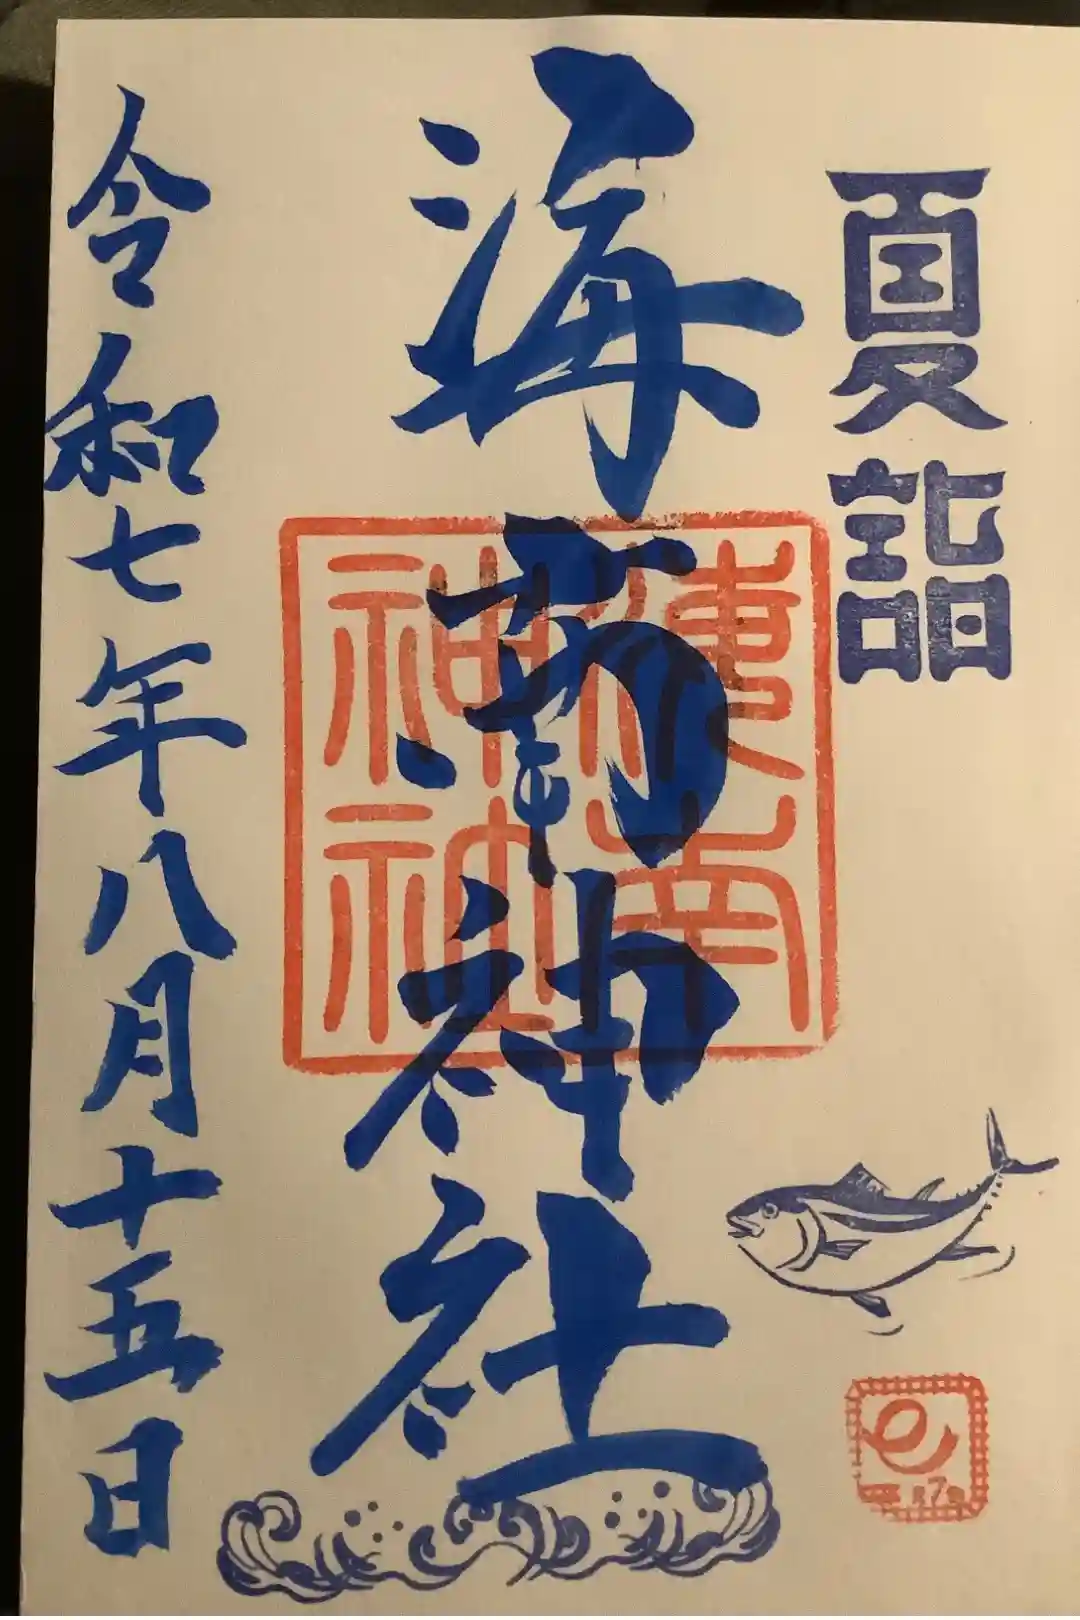 夏詣
海南神社
海南
神社
令和七年八月十五日
7